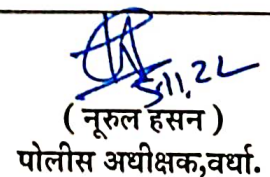 5.11.22
( नूरुल हसन )
पोलीस अधीक्षक,वर्धा.